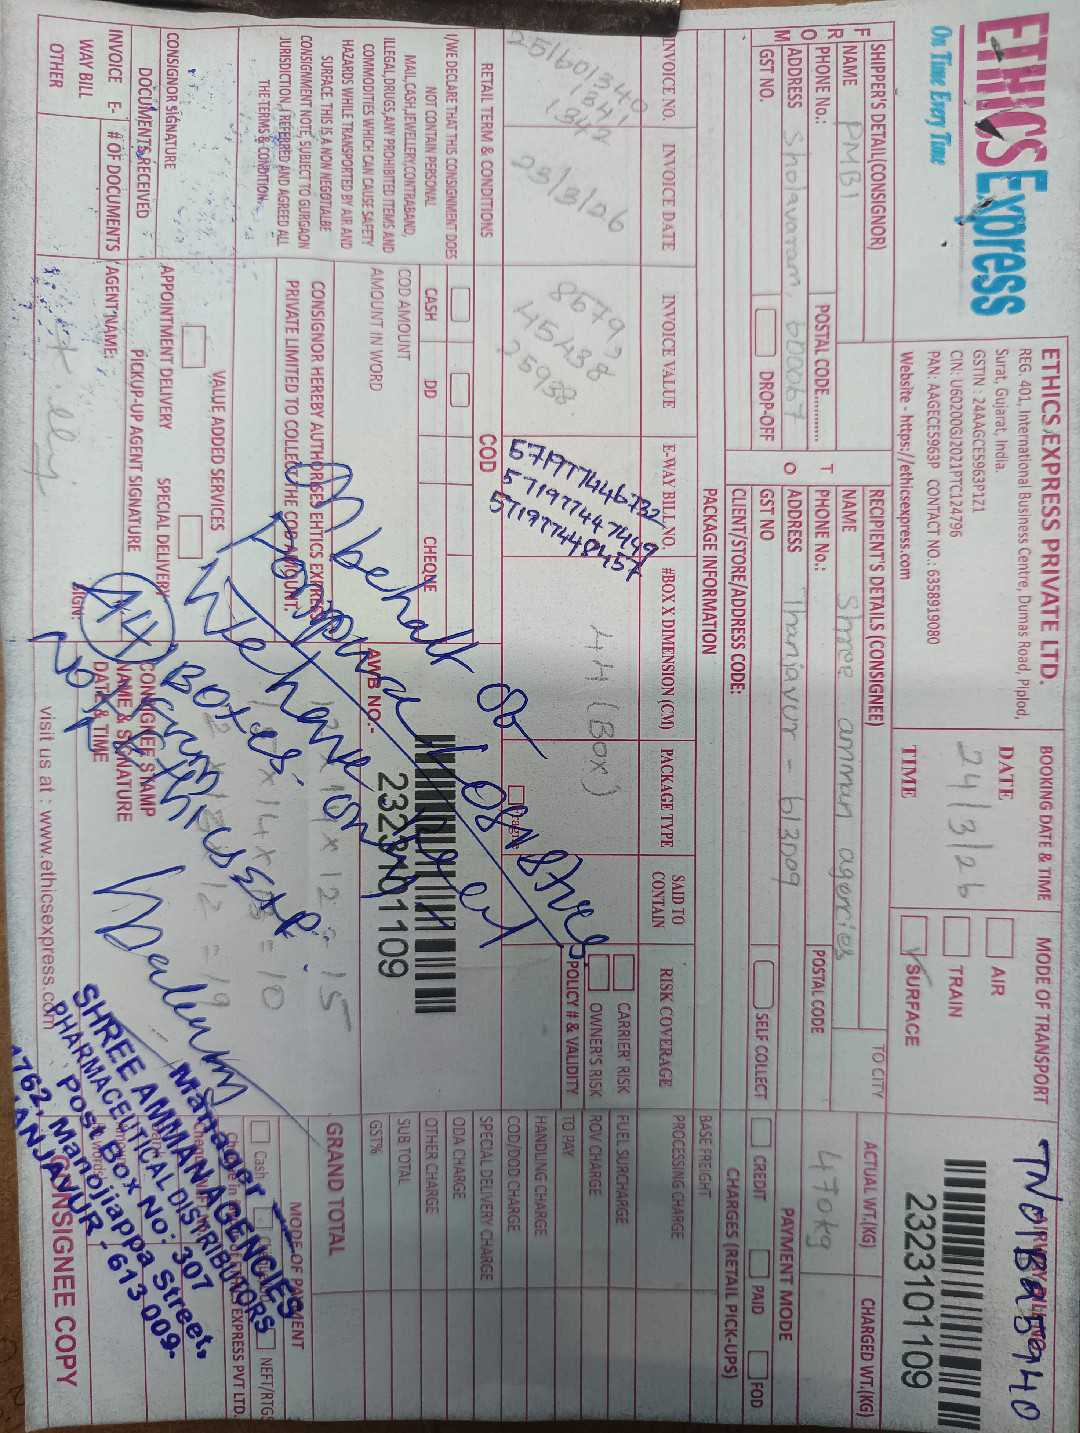 ETHICS Express
On Time Every Time
ETHICS EXPRESS PRIVATE LTD.
REG 401, International Business Centre, Dumas Road, Piplod,
Surat, Gujarat, India.
GSTIN : 24AAGCE5963P1Z1
CIN: U60200GJ2021PTC124796
PAN: AAGECE5963P CONTACT NO.: 6358919080
Website - https://ethicsexpress.com
BOOKING DATE & TIME
DATE 24/3/26
TIME
MODE OF TRANSPORT
AIR
TRAIN
SURFACE
2323101109
SHIPPER'S DETAIL(CONSIGNOR)
FROM
NAME PMBI
PHONE No.:
POSTAL CODE
ADDRESS Sholavaram, 600067
GST NO.
DROP-OFF
RECIPIENT'S DETAILS (CONSIGNEE)
TO
NAME Shree amman agencies
TO CITY
PHONE No.:
POSTAL CODE
ADDRESS Thanjavur - 613009
GST NO
SELF COLLECT
CLIENT/STORE/ADDRESS CODE:
ACTUAL WT.(KG)
CHARGED WT.(KG)
470kg
PAYMENT MODE
CREDIT
PAID
FOD
CHARGES (RETAIL PICK-UPS)
PACKAGE INFORMATION
INVOICE NO.
INVOICE DATE
INVOICE VALUE
E-WAY BILL NO
#BOX X DIMENSION (CM)
PACKAGE TYPE
SAID TO CONTAIN
RISK COVERAGE
251601340
1341
1342
23/3/26
8679,
45438
25938
571977446732
571977447449
571977448457
44 (BOX)
Fragile
CARRIER' RISK
OWNER'S RISK
POLICY # & VALIDITY
BASE FREIGHT
PROCESSING CHARGE
FUEL SURCHARGE
ROV CHARGE
TO PAY
HANDLING CHARGE
COD/DOD CHARGE
SPECIAL DELIVERY CHARGE
ODA CHARGE
OTHER CHARGE
SUB TOTAL
GST%
GRAND TOTAL
RETAIL TERM & CONDITIONS
I/WE DECLARE THAT THIS CONSIGNMENT DOES
NOT CONTAIN PERSONAL
MAIL,CASH,JEWELLERY,CONTRABAND,
ILLEGAL,DRUGS,ANY PROHIBITED ITEMS AND
COMMODITIES WHICH CAN CAUSE SAFETY
HAZARDS WHILE TRANSPORTED BY AIR AND
SURFACE. THIS IS A NON NEGOTIALBE
CONSIGNMENT NOTE, SUBJECT TO GURGAON
JURISDICTION, I REFERRED AND AGREED ALL
THE TERMS & CONDITION.
COD
CASH
DD
CHEQNE
COD AMOUNT
AMOUNT IN WORD
CONSIGNOR HEREBY AUTHORISES EHTICS EXPRESS
PRIVATE LIMITED TO COLLECT THE COD AMOUNT.
AWB NO.-
2323101109
behalf of
We have
44 BOXES
12 = 15
x 14 x = 10
12 = 19
VALUE ADDED SERVICES
APPOINTMENT DELIVERY
SPECIAL DELIVERY
CONSIGNOR SIGNATURE
DOCUMENTS RECEIVED
INVOICE E-WAY BILL OTHER
# OF DOCUMENTS
PICKUP-UP AGENT SIGNATURE
AGENT NAME:
SIGN:
CONSIGNEE STAMP
NAME & SIGNATURE
DATE & TIME
visit us at : www.ethicsexpress.com
MODE OF PAYMENT
Cash
NEFT/RTGS
EXPRESS PVT LTD.
Manager
SHREE AMMAN AGENCIES
PHARMACEUTICAL DISTRIBUTORS
Post Box No: 307
1762, Manojiappa Street,
THANJAVUR - 613 009.
CONSIGNEE COPY